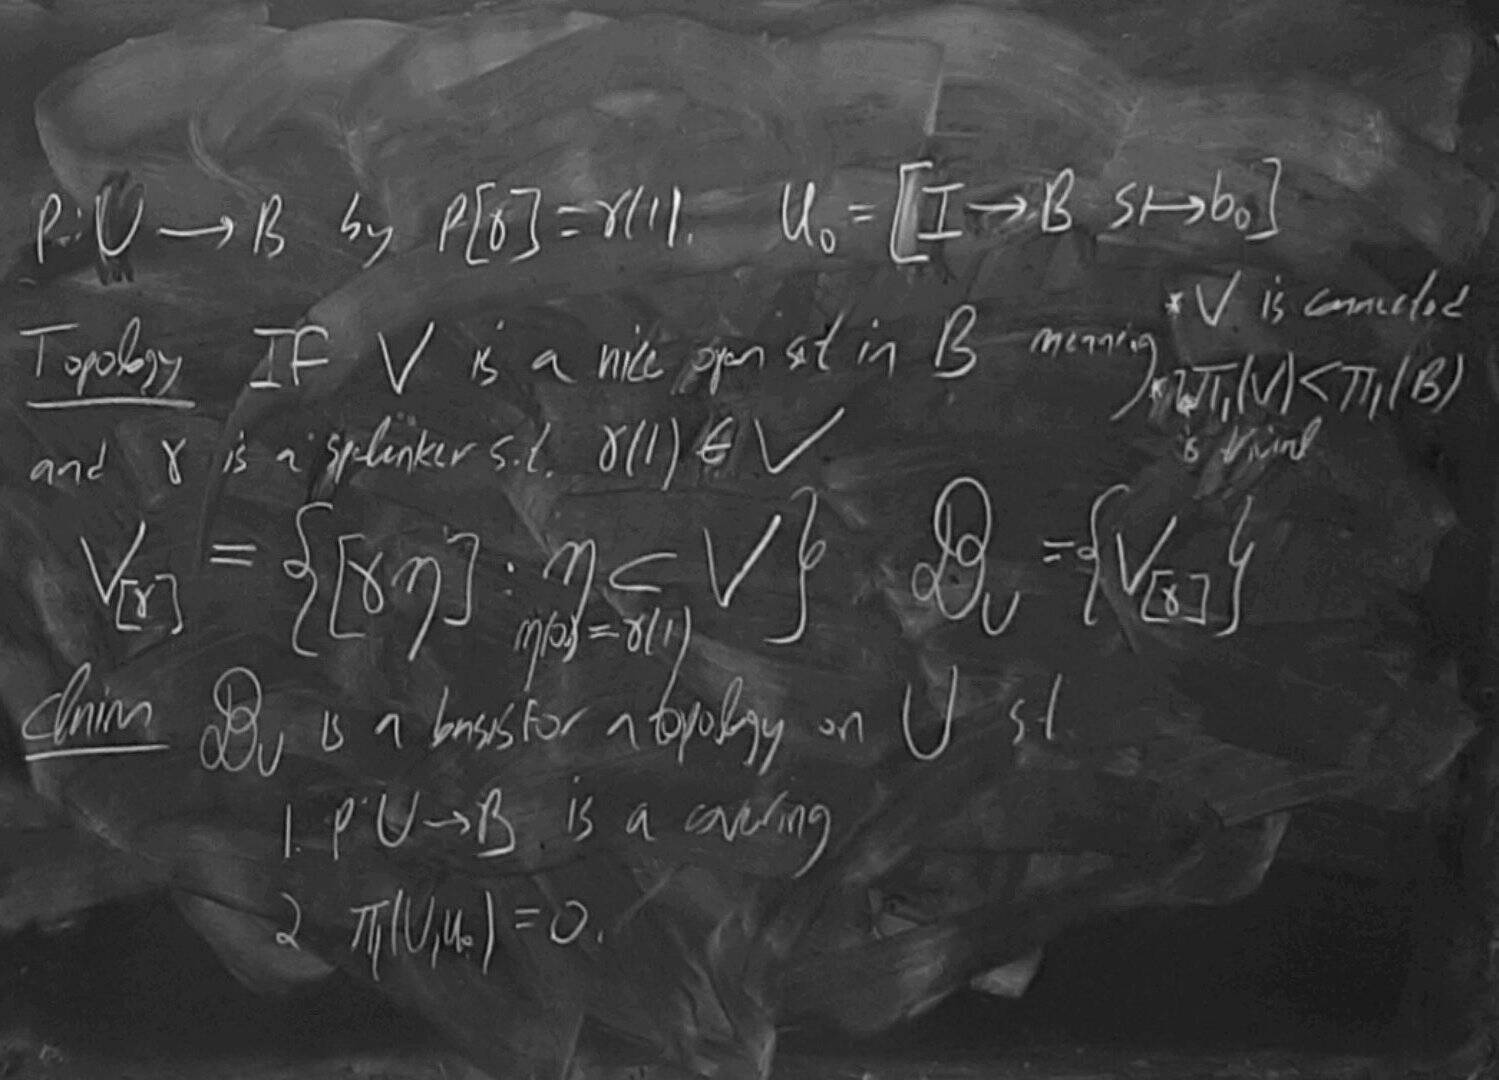 p: U → B by p[γ] = γ(1). u₀ = [I → B s ↦ b₀]
Topology IF V is a nice open set in B meaning * V is connected
* π₁(V) < π₁(B) is trivial
and γ is a spelunker s.t. γ(1) ∈ V
V_[γ] = {[γη] : η ⊂ V} 𝓑_U = {V_[γ]}
η(0) = γ(1)
Claim 𝓑_U is a basis for a topology on U s.t.
1. p: U → B is a covering
2 π₁(U, u₀) = 0.